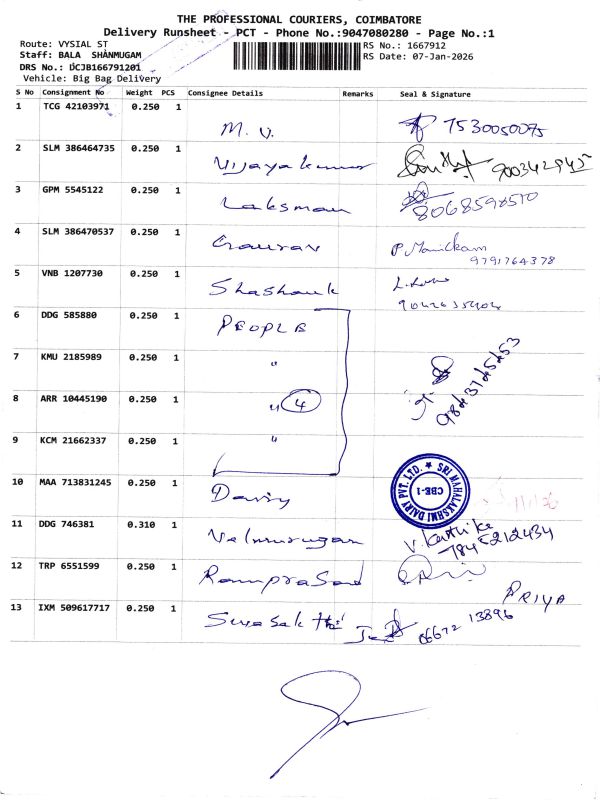 THE PROFESSIONAL COURIERS, COIMBATORE
Delivery Runsheet - PCT - Phone No.:9047080280 - Page No.:1
Route: VYSIAL ST
RS No.: 1667912
Staff: BALA SHANMUGAM
RS Date: 07-Jan-2026
DRS No.: DCJB166791201
Vehicle: Big Bag Delivery
S No Consignment No Weight PCS Consignee Details Remarks Seal & Signature
1 TCG 42103971 0.250 1 M. V. 7530050075
2 SLM 386464735 0.250 1 Vijayakumar
3 GPM 5545122 0.250 1 Laksman 8068598570
4 SLM 386470537 0.250 1 Gaurav P. Manickam
9791764378
5 VNB 1207730 0.250 1 Shashank
6 DDG 585880 0.250 1 PEOPLE
7 KMU 2185989 0.250 1 "
8 ARR 10445190 0.250 1 " 4
9 KCM 21662337 0.250 1 "
10 MAA 713831245 0.250 1 Dairy
SRI MAHALAKSHMI DAIRY PVT. LTD. ★ CBE-1
11 DDG 746381 0.310 1 Velmurugan V. Karthika
7845212434
12 TRP 6551599 0.250 1 Ramprasad
PRIYA
13 IXM 509617717 0.250 1 Sivasakthi 06672 13896